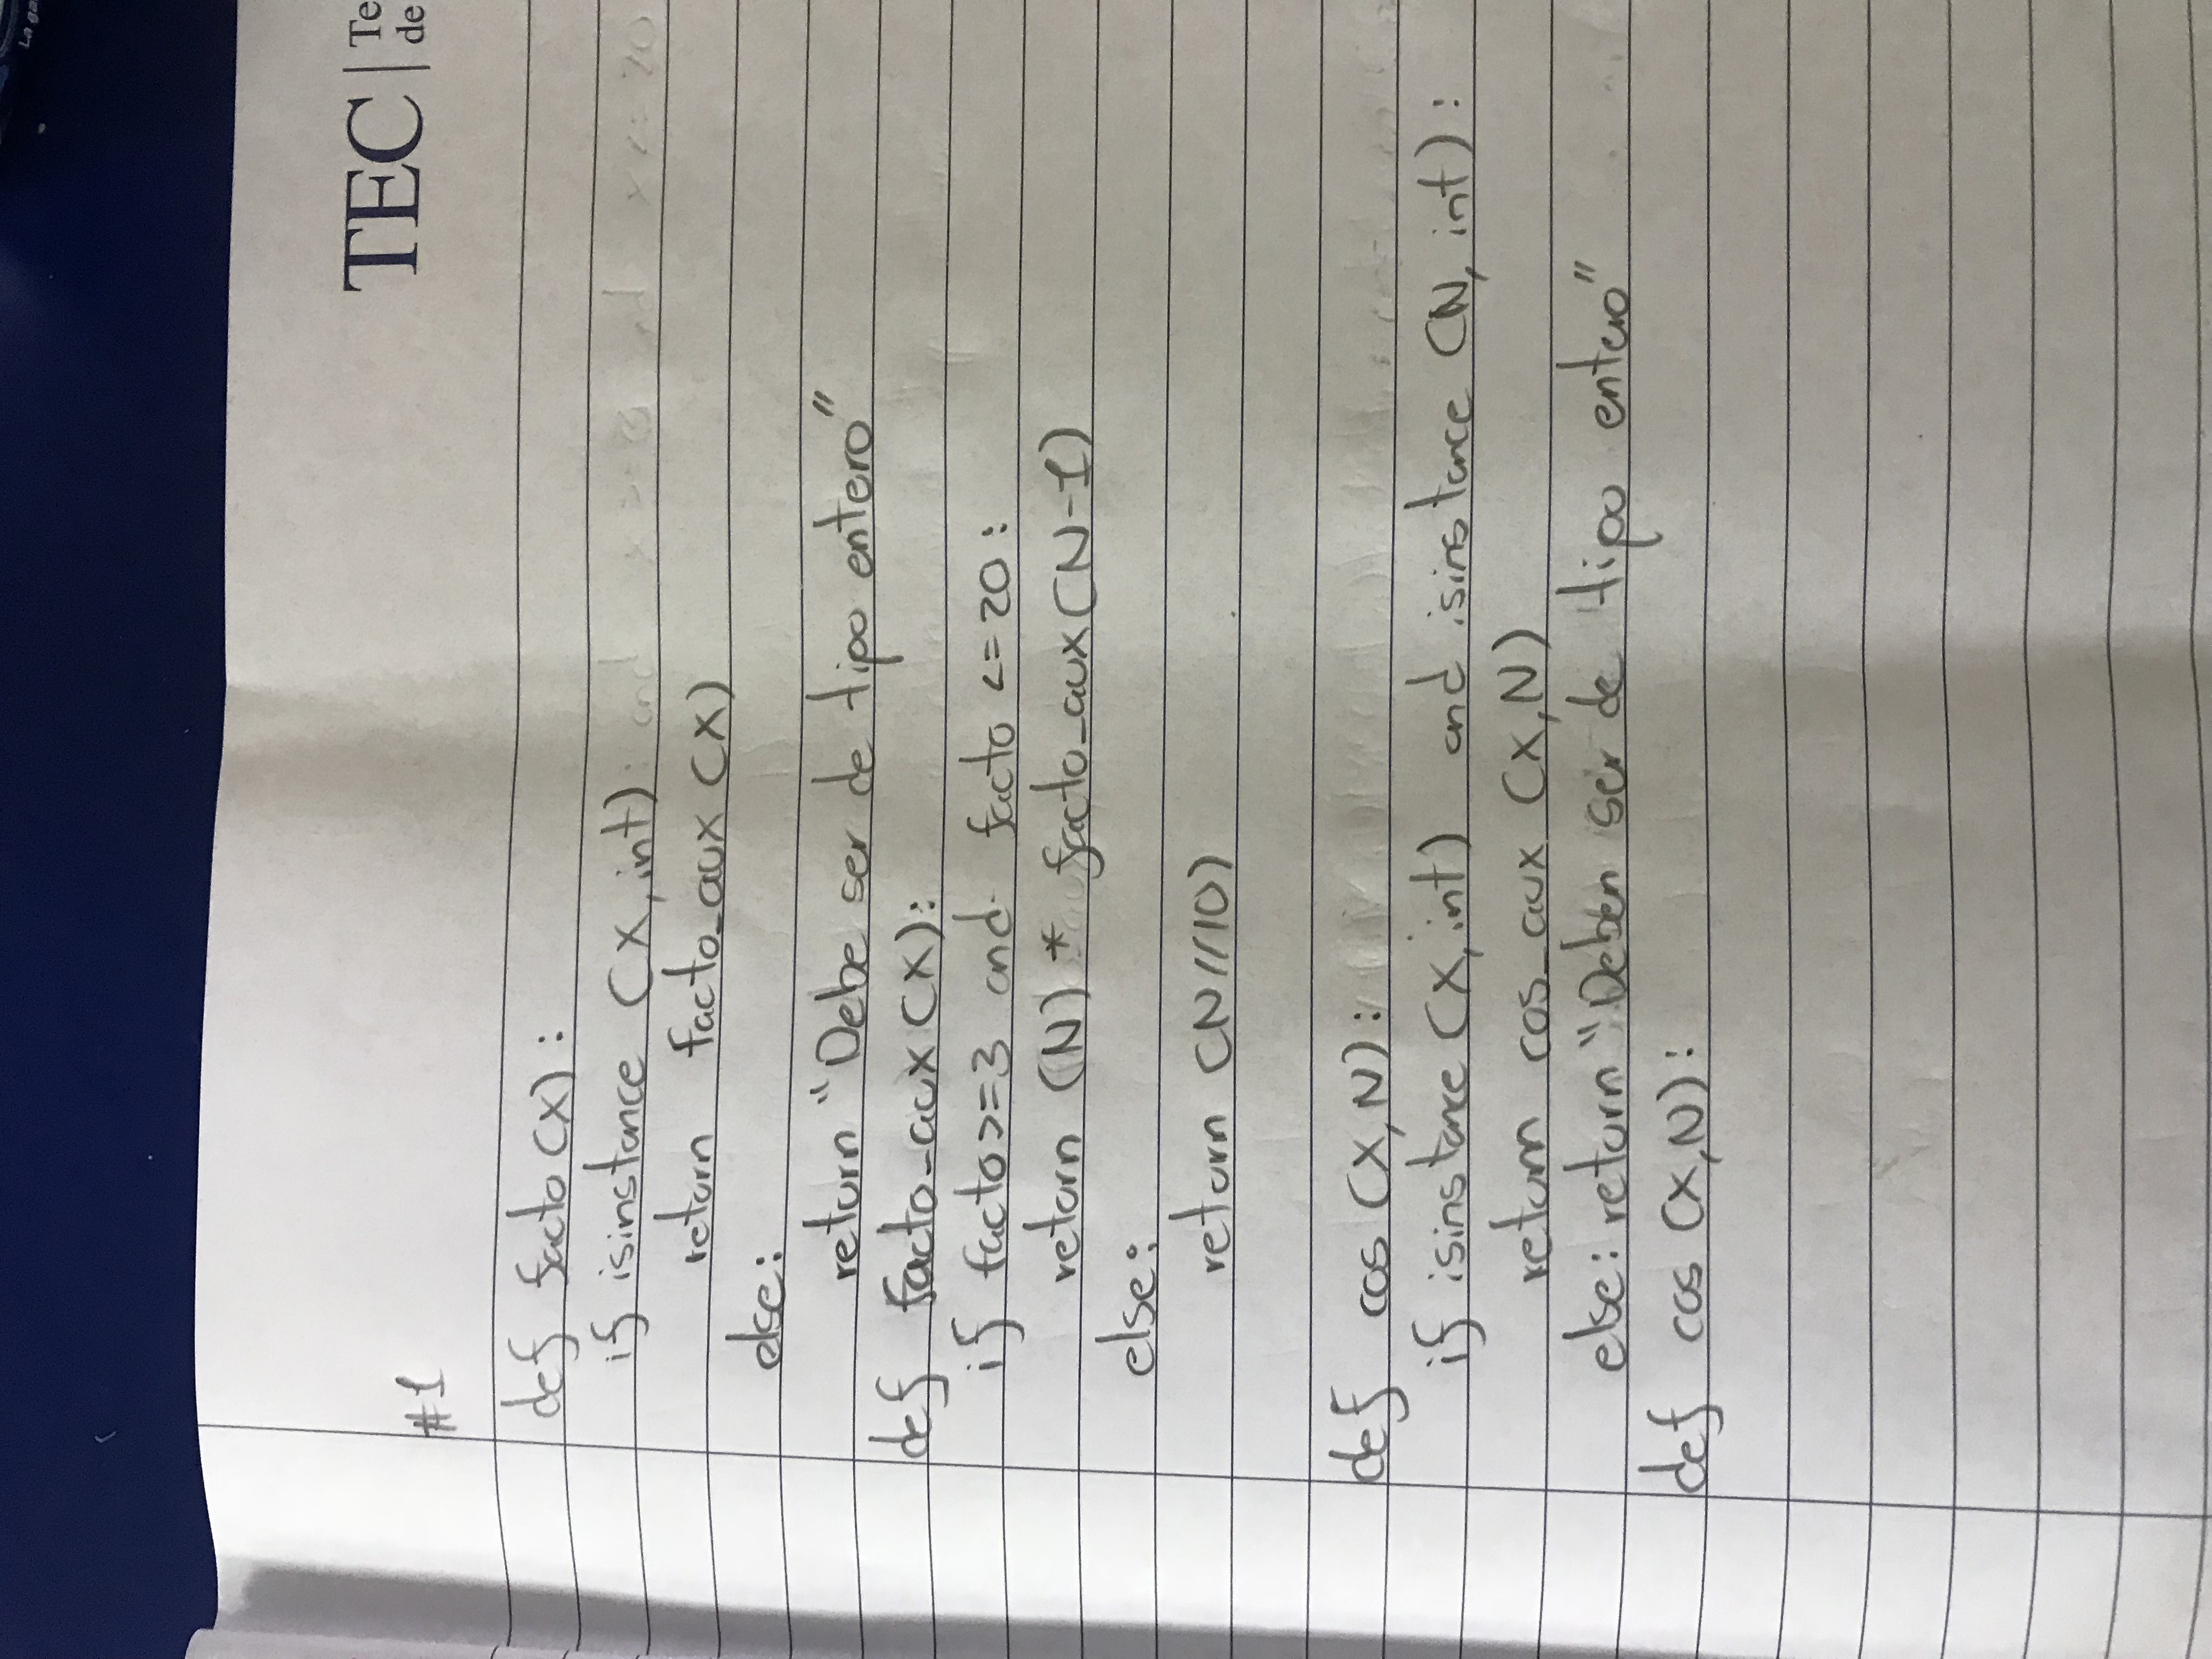 La ga
TEC | Te
de
#1
def facto (X):
if isinstance (X, int): and x >= 3 and x <= 20
return facto_aux (X)
else:
return "Debe ser de tipo entero"
def facto_aux (X):
if facto>=3 and facto <=20:
return (N) * facto_aux (N-1)
else:
return (N//10)
def cos (X,N):
if isinstance (X, int) and isinstance (N, int):
return cos_aux (X,N)
else: return "Deben ser de tipo entero"
def cos (X,N):